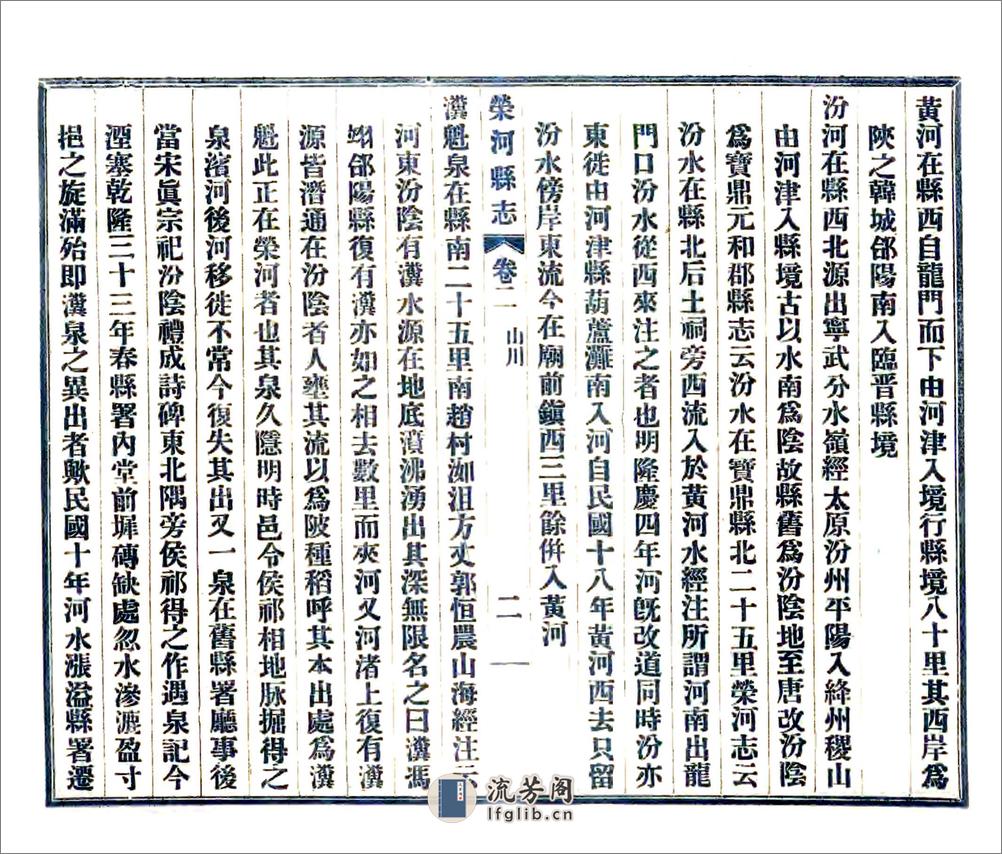 黃河在縣西自龍門而下由河津入境行縣境八十里其西岸爲
陝之韓城郃陽南入臨晉縣境
汾河在縣西北源出寧武分水嶺經太原汾州平陽入絳州稷山
由河津入縣境古以水南爲陰故縣舊爲汾陰地至唐改汾陰
爲寶鼎元和郡縣志云汾水在寶鼎縣北二十五里榮河志云
汾水在縣北后土祠旁西流入於黃河水經注所謂河南出龍
門口汾水從西來注之者也明隆慶四年河旣改道同時汾亦
東徙由河津縣葫蘆灘南入河自民國十八年黃河西去只留
汾水傍岸東流今在廟前鎭西三里餘倂入黃河
榮河縣志 卷一 山川 二
瀵魁泉在縣南二十五里南趙村洳沮方丈郭恒農山海經注云
河東汾陰有瀵水源在地底濆沸湧出其深無限名之曰瀵馮
翊郃陽縣復有瀵亦如之相去數里而夾河又河渚上復有瀵
源皆潛通在汾陰者人壅其流以爲陂種稻呼其本出處爲瀵
魁此正在榮河者也其泉久隱明時邑令侯祁相地脉掘得之
泉濱河後河移徙不常今復失其出又一泉在舊縣署廳事後
當宋眞宗祀汾陰禮成詩碑東北隅旁侯祁得之作遇泉記今
湮塞乾隆三十三年春縣署內堂前墀磚缺處忽水滲漉盈寸
挹之旋滿殆即瀵泉之異出者歟民國十年河水漲溢縣署遷
流芳阁
lfglib.cn